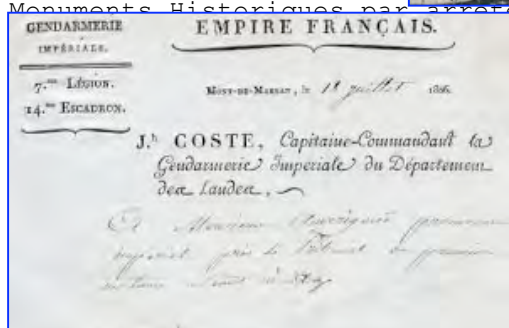 Monuments Historiques par arrêté
GENDARMERIE
IMPÉRIALE.
7.me LÉGION.
14.me ESCADRON.
EMPIRE FRANÇAIS.
MONT-DE-MARSAN, le 18 juillet 1806.
J.h COSTE, Capitaine-Commandant la
Gendarmerie Imperiale du Département
des Landes,
A Monsieur
imperial près le Tribunal de première